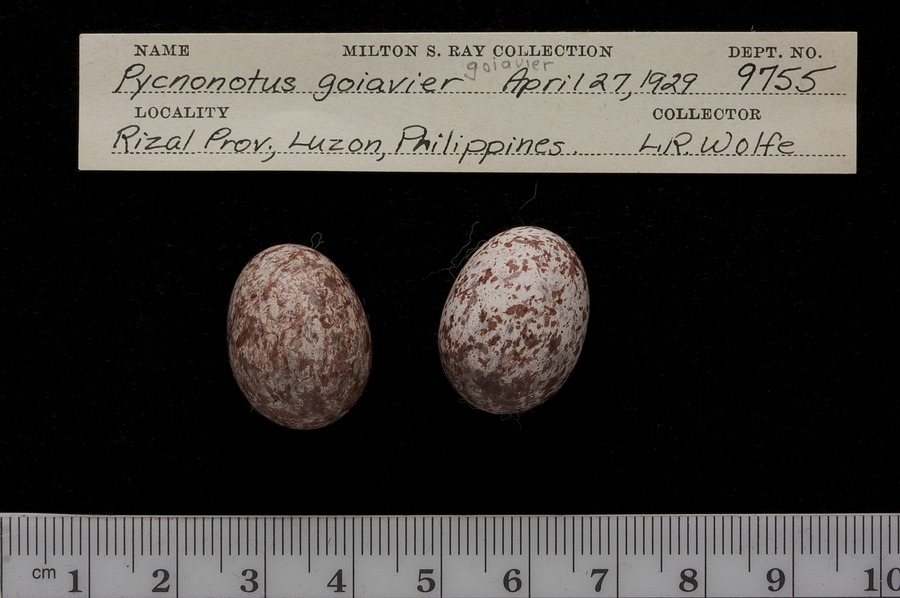 NAME MILTON S. RAY COLLECTION DEPT. NO.
goiavier
Pycnonotus goiavier April 27, 1929 9755
LOCALITY COLLECTOR
Rizal Prov., Luzon, Philippines. L.R. Wolfe
cm 1 2 3 4 5 6 7 8 9 10